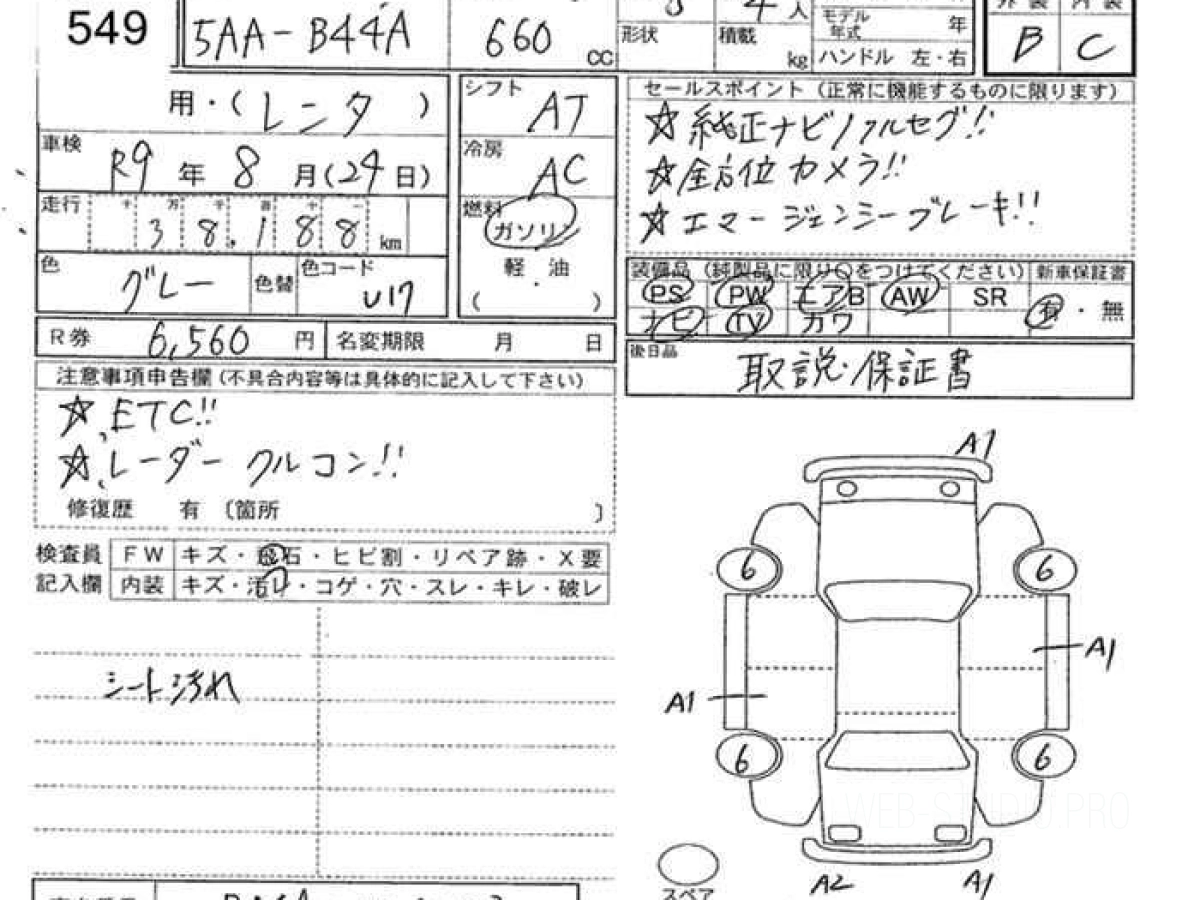 549
5AA-B44A
660 CC
形状
4人
積載 kg
モデル年式 年
ハンドル 左・右
外装 内装
B C
用・(レンタ)
シフト AT
車検 R9年8月(24日)
冷房 AC
走行 千 万 千 百 十 一
38,188 km
燃料 ガソリン
軽 油
( )
色 グレー 色替 色コード U17
R券 6,560円 名変期限 月 日
注意事項申告欄(不具合内容等は具体的に記入して下さい)
☆ETC!!
☆レーダークルコン!!
修復歴 有 〔箇所 〕
検査員記入欄
FW キズ・飛石・ヒビ割・リペア跡・X要
内装 キズ・汚レ・コゲ・穴・スレ・キレ・破レ
シート汚れ
セールスポイント(正常に機能するものに限ります)
☆純正ナビ/フルセグ!!
☆全方位カメラ!!
☆エマージェンシーブレーキ!!
装備品(純製品に限り○をつけてください) 新車保証書
PS PW エアB AW SR 有・無
ナビ TV カワ
後日品
取説・保証書
A1
6 6
A1
A1
6 6
WEB-STUDIO.PRO
スペア
A2 A1